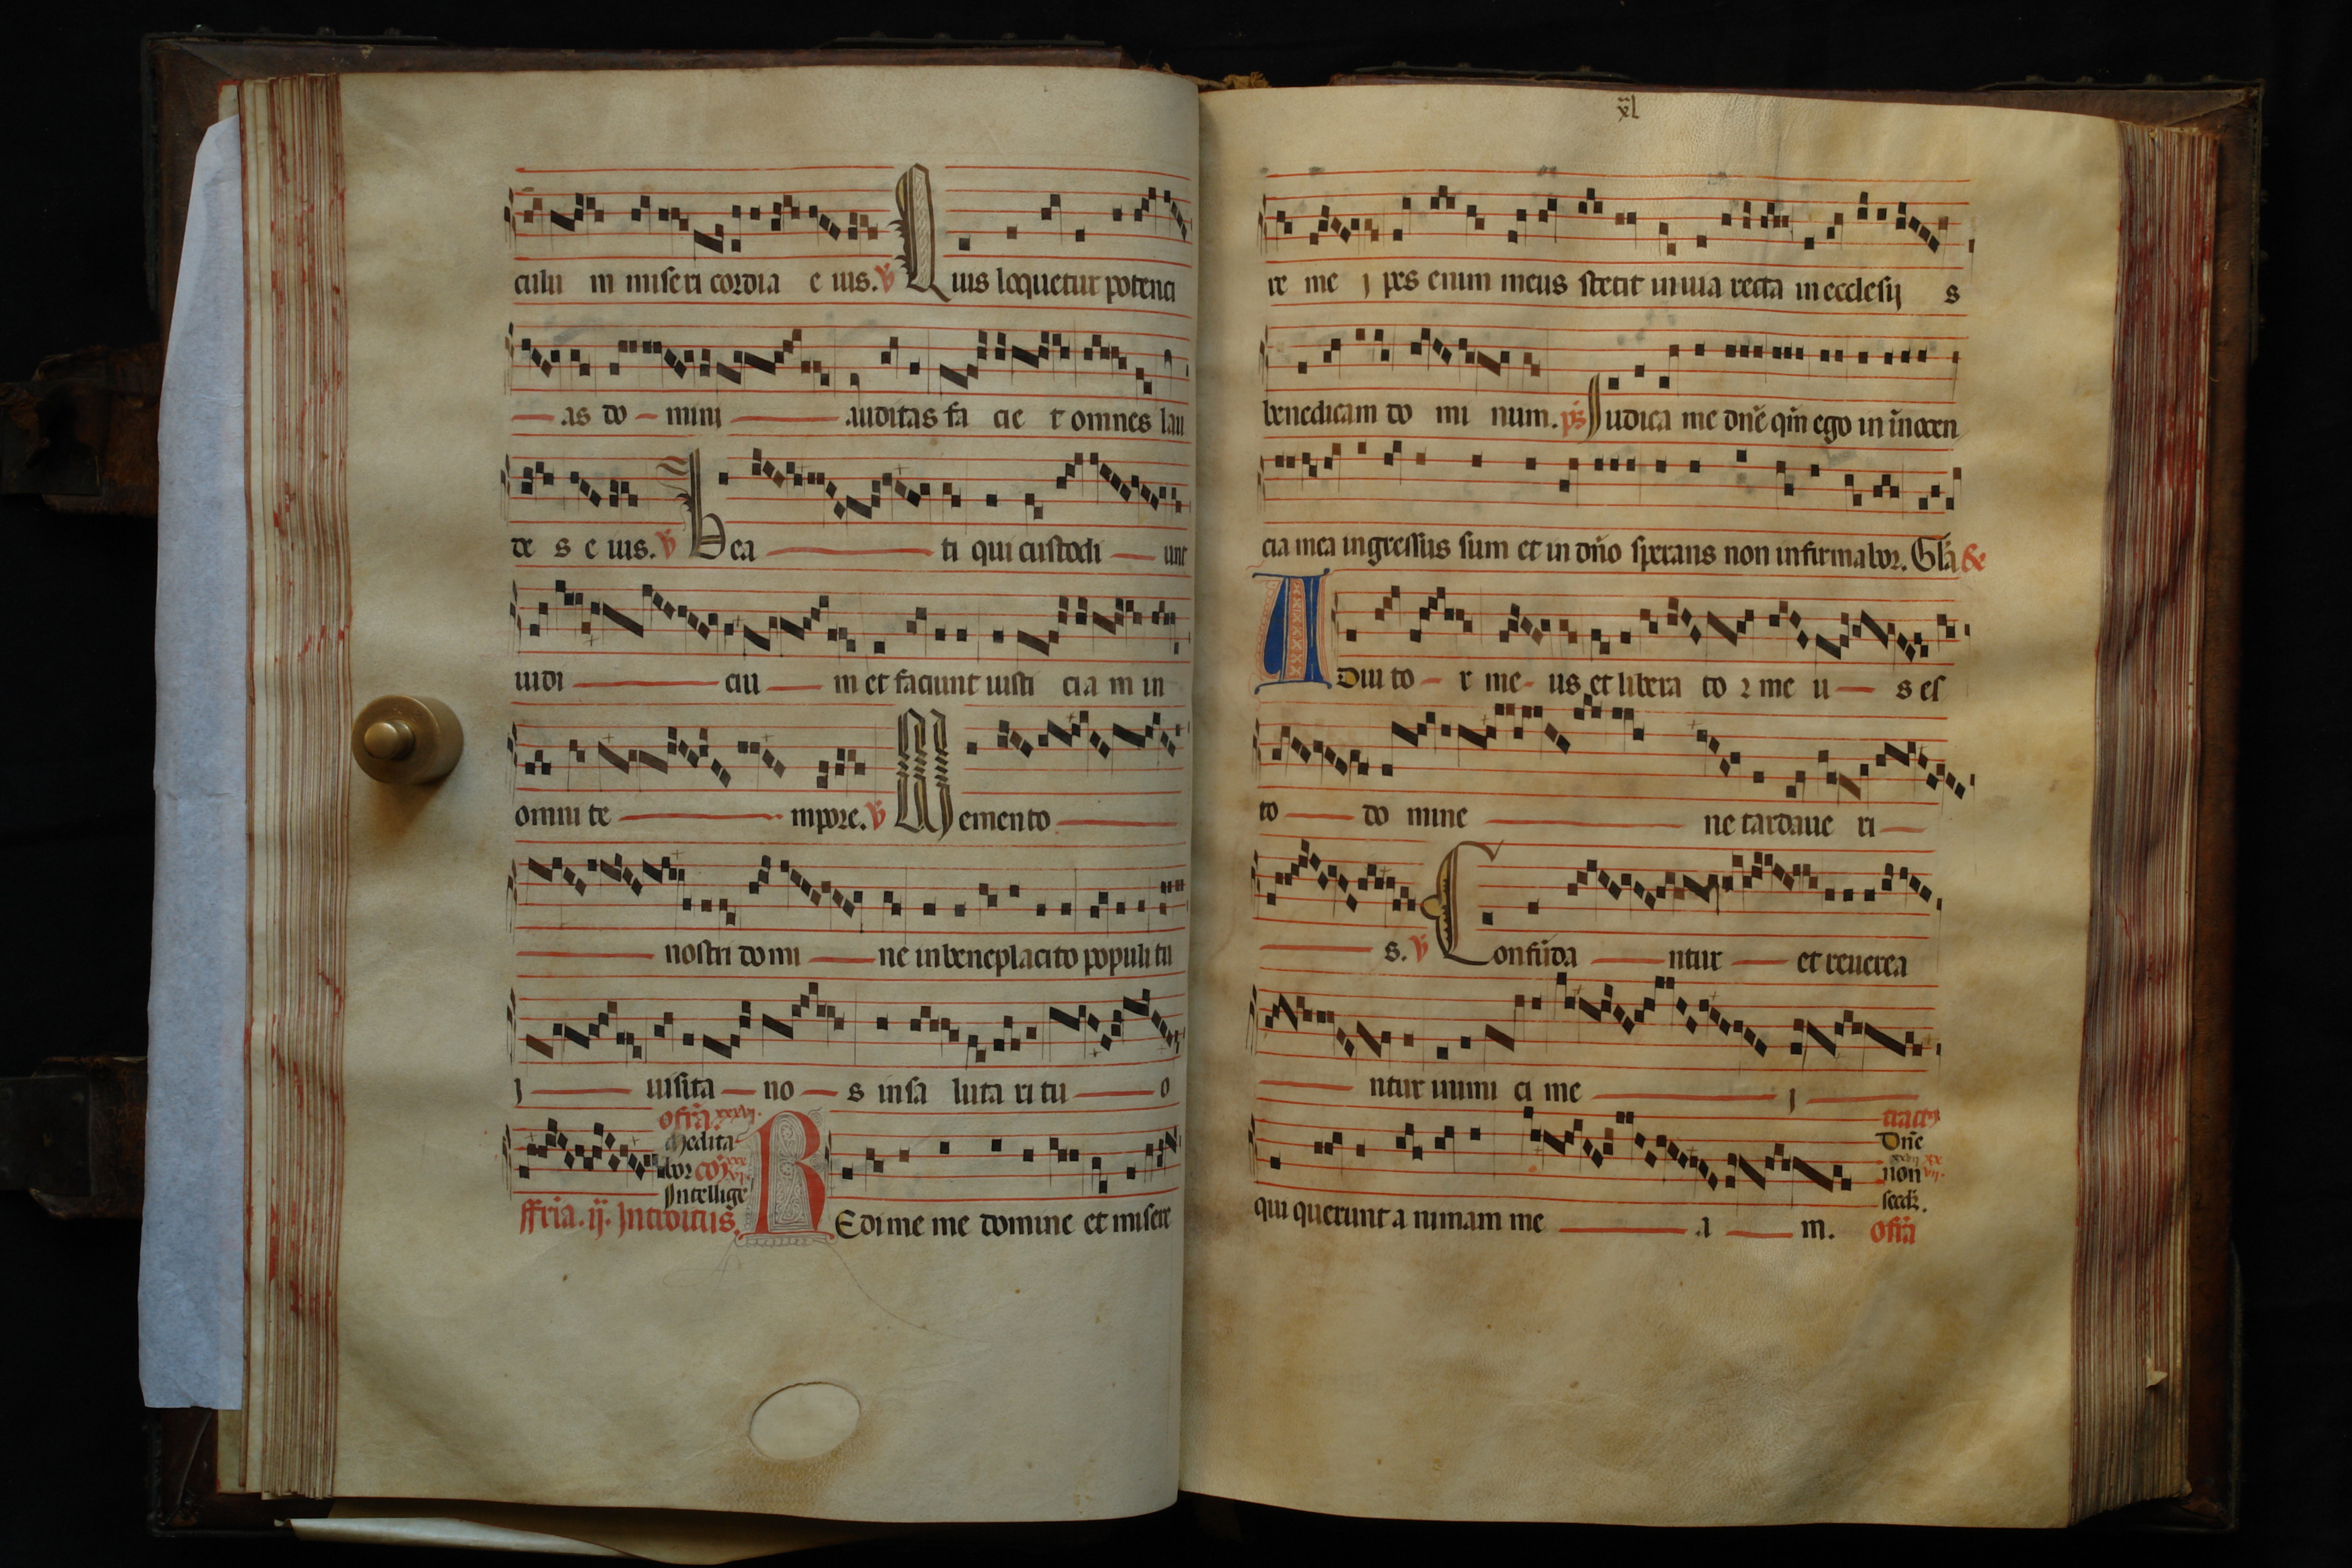 culu m miseri cordia e ius. v Quis loquetur potenci
as do mini auditas fa cie t omnes lau
de s e ius. v Bea ti qui custodi unt
iudi ciu m et faciunt iusti cia m in
omni te mpore. v Memento
nostri domi ne in beneplacito populi tu
i uisita no s in sa luta ri tu o
offr̄a. xxxvj.
Medita
bor cōj xxx vj.
Intellige
fferia. ij. Introitus. REdime me domine et misere
xl
re me i pes enim meus stetit in uia recta in ecclesij s
benedicam do mi num. ps Judica me dn̄e qm̄ ego in in̄ocen
cia mea ingressus sum et in dn̄o sperans non infirmabor. Gl̄a
ADiu to r me us et libera to r me u s es
to do mine ne tardaue ri
s. v Confūda ntur et reuerea
ntur inimi ci me i
tractꝰ
Dn̄e
non
qui querunt a nimam me a m. offr̄a